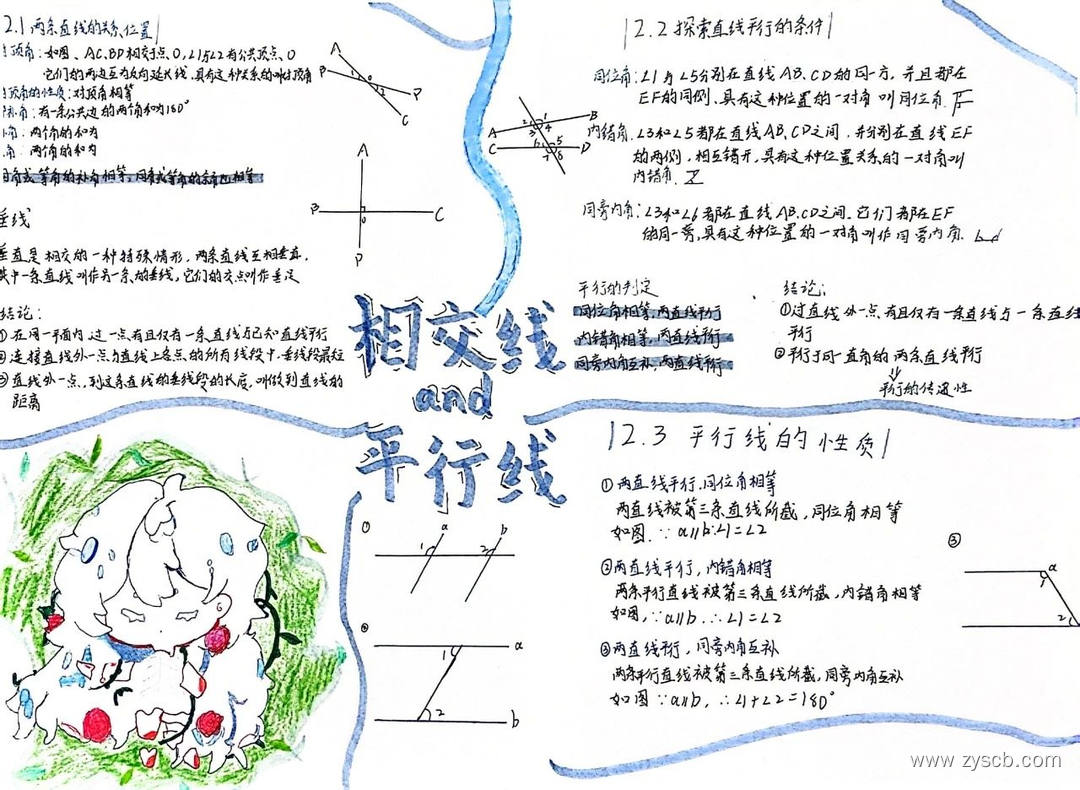 2.1 两条直线的关系位置
顶角：如图、AC.BD相交于点O,∠1与∠2有公共顶点、O
它们的两边互为反向延长线,具有这种关系的叫对顶角
顶角的性质：对顶角相等
角：有一条公共边的两角和为180°
角：两个角的和为
角：两个角的和为
同角或等角的补角相等,同角或等角的余角也相等
A
B
O
P
C
A
B
C
P
垂线
垂直是相交的一种特殊情形,两条直线互相垂直,
其中一条直线叫作另一条的垂线,它们的交点叫作垂足
结论：
①在同一平面内 过一点有且仅有一条直线与已知直线平行
②连接直线外一点与直线上各点的所有线段中,垂线段最短
③直线外一点,到这条直线的垂线段的长度,叫做到直线的
距离
12.2 探索直线平行的条件
同位角：∠1与∠5分别在直线AB、CD的同一方,并且都在
EF的同侧,具有这种位置的一对角叫同位角.
内错角.∠3和∠5都在直线AB,CD之间,并分别在直线EF
的两侧,相互错开,具有这种位置关系的一对角叫
内错角.
同旁内角：∠3和∠6都在直线AB.CD之间.它们都在EF
的同一旁,具有这种位置的一对角叫作同旁内角.
A
B
C
D
1
2
3
4
5
6
7
8
平行的判定
同位角相等,两直线平行
内错角相等,两直线平行
同旁内角互补,两直线平行
结论：
①过直线外一点有且仅有一条直线与一条直线
平行
②平行于同一直角的两条直线平行
平行的传递性
相交线
and
平行线
12.3 平行线的性质
①两直线平行,同位角相等
两直线被第三条直线所截,同位角相等
如图.∵a∥b.∠1=∠2
②两直线平行,内错角相等
两条平行直线被第三条直线所截,内错角相等
如图,∵a∥b.∴∠1=∠2
③两直线平行,同旁内角互补
两条平行直线被第三条直线所截,同旁内角互补
如图∵a∥b,∴∠1+∠2=180°
①
a
b
1
2
②
a
1
2
b
③
a
1
2
www.zyscb.com